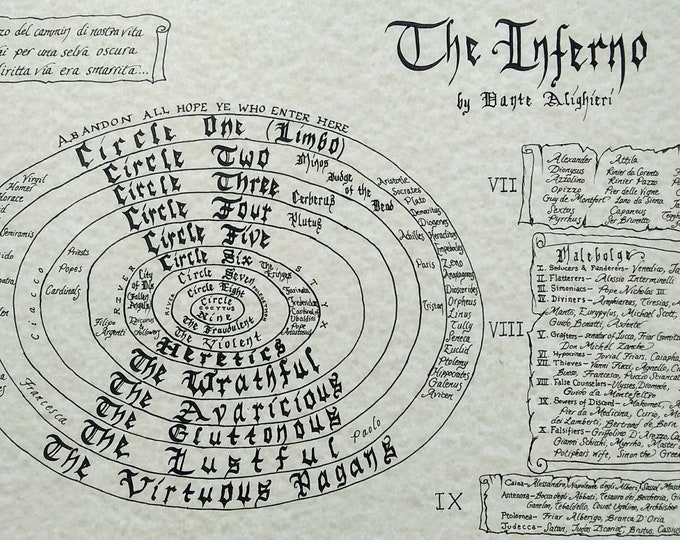 zo del cammin di nostra vita
ai per una selva oscura
diritta via era smarrita...
The Inferno
by Dante Alighieri
ABANDON ALL HOPE YE WHO ENTER HERE
Circle One (Limbo)
Circle Two
Minos
Judge of the Dead
Circle Three
Cerberus
Circle Four
Plutus
Circle Five
Circle Six
Circle Seven
Circle Eight
Circle
Cocytus
Nine
The Fraudulent
The Violent
Heretics
The Wrathful
The Avaricious
The Gluttonous
The Lustful
The Virtuous Pagans
Virgil
Homer
Horace
Semiramis
Ciacco
Francesca
Paolo
Priests
Popes
Cardinals
RIVER
STYX
City of Dis
Fallen Angels
Filippo Argenti
Epicurus & Followers
The Erinyes
Farinata
Pope Anastasius
Achilles
Paris
Tristan
Aristotle
Socrates
Plato
Democritus
Diogenes
Heraclitus
Empedocles
Zeno
Anaxagoras
Dioscorides
Orpheus
Linus
Tully
Seneca
Euclid
Ptolemy
Hippocrates
Galenus
Avicen
VII
Alexander
Dionysus
Azzolino
Opizzo
Guy de Montfort
Sextus
Pyrrhus
Attila
Rinier da Corneto
Rinier Pazzo
Pier delle Vigne
Lano da Siena
Capaneus
Ser Brunetto
VIII
Malebolge
I. Seducers & Panderers- Venedico, Ja
II. Flatterers - Alessio Interminelli
III. Simoniacs - Pope Nicholas III
IV. Diviners - Amphiareas, Tiresias,
Manto, Eurypylus, Michael Scott,
Guido Bonatti, Asdente
V. Grafters- senator of Lucca, Friar Gomita
Don Michel Zanche
VI. Hypocrites - Jovial Friars, Caiapha
VII. Thieves - Vanni Fucci, Agnello,
Buoso, Francesco, Puccio Sciancat
VIII. False Counselors - Ulysses, Diomede,
Guido da Montefeltro
IX. Sowers of Discord - Mahomet,
Pier da Medicina, Curio, Mo
dei Lamberti, Bertrand de Born
X. Falsifiers - Griffolino D'Arezzo, Ca
Gianni Schicchi, Myrrha, Master
Potiphar's Wife, Sinon the Greek
IX
Caina- Alessandro, Napoleone degli Alberti, Sassol Mas
Antenora- Bocca degli Abbati, Tesauro dei Beccheria,
Ganelon, Tebaldello, Count Ugolino, Archbishop
Ptolomea - Friar Alberigo, Branca D'Oria
Judecca- Satan, Judas Iscariot, Brutus, Cassius